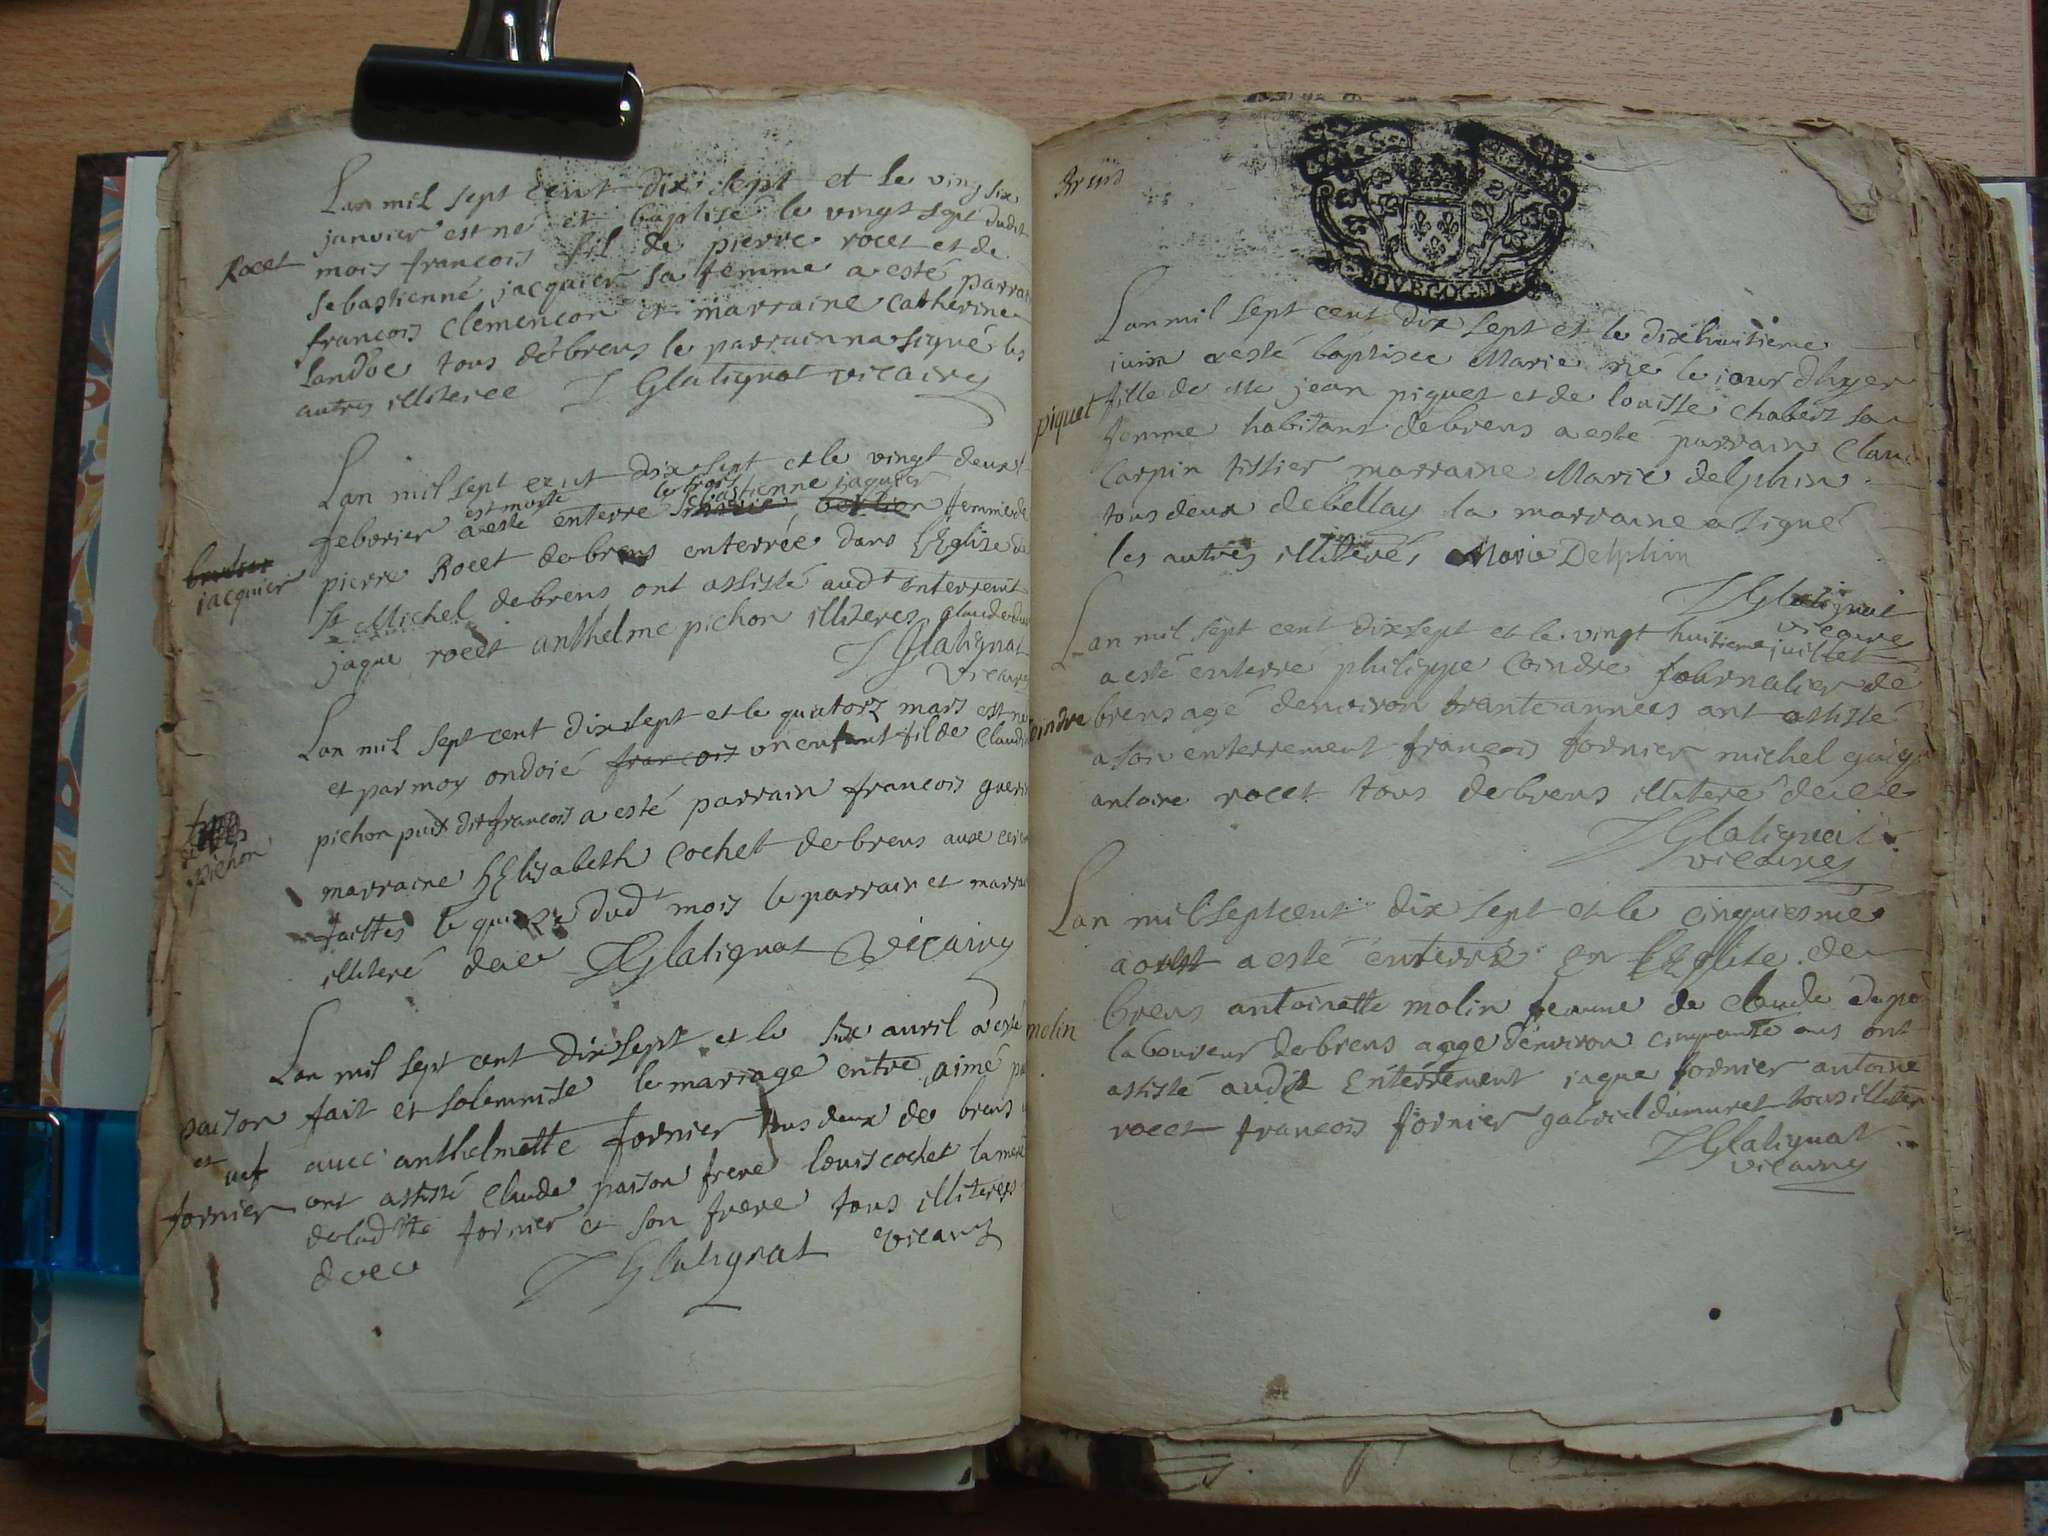 Lan mil sept cent dix sept et le vingsix
janvier est né et baptisé le vingt sept dudit
Rocet
mois francois fil de pierre rocet et de
sebastienne jacquier sa femme a esté parrai
francois Clemencon et marraine Catherine
Landoe tous debrens le parrain na signé les
autres illiteree J Glatignat vicaire
Lan mil sept cent dix sept et le vingt deux
est morte le trois sebastienne jaquier
feborier a esté enterre femme de
jacquier
pierre Rocet debrens enterrée dans LEglize de
St Michel debrens ont assisté audt enterremt
jaque rocet anthelme pichon illiteres
J Glatignat
vicaire
Lan mil sept cent dix sept et le quatorz mars est né
et par moy ondoié francois un enfant fil de Claud
pichon
pichon puis dit francois a esté parrain francois gueri
marraine LElisabeth Cochet debrens aux
faittes le quinze dudt mois le parrain et marra
illiteré dece J Glatignat vicaire
Lan mil sept cent dix sept et le six auril a esté
paison
et
fornier
fait et solemnisé le mariage entre aimé pa
avec anthelmette fornier tous deux de brens
ont assisté Claude paison frere louis cochet
deladitte fornier et son frere tous illiteres
dece J Glatignat vicaire
Brens
BOVRGOGNE
Lan mil sept cent dix sept et le dixhuitieme
juin a esté baptisee Marie né le jour dhyer
piquet
fille de Mc jean piquet et de louisse chabert sa
femme habitans debrens a esté parrain Claud
Carpin tissier marraine Marie delphin
tous deux debellay la marraine a signé
les autres illiterés Marie Delphin
J Glatignat
vicaire
Lan mil sept cent dix sept et le vingt huitieme juillet
a esté enterré philippe Coindre journalier de
Coindre
brens agé denviron trante annees ont assisté
a son enterrement francois fornier michel
antoine rocet tous debrens illiteré dece
J Glatignat
vicaire
Lan mil sept cent dix sept et le cinquiesme
aoust a esté enterré en LEglise de
brens antoinette molin femme de Claude
molin
laboureur debrens aage denviron cinquante ans ont
assisté audit Enterrement jaque fornier antoine
rocet francois fornier gabriel dumuret tous illiter
J Glatignat
vicaire